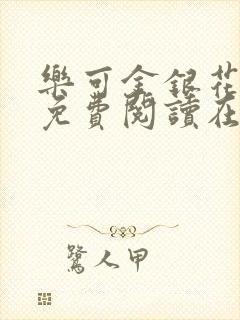 樂可金銀花
免費閱讀在
鷺人甲